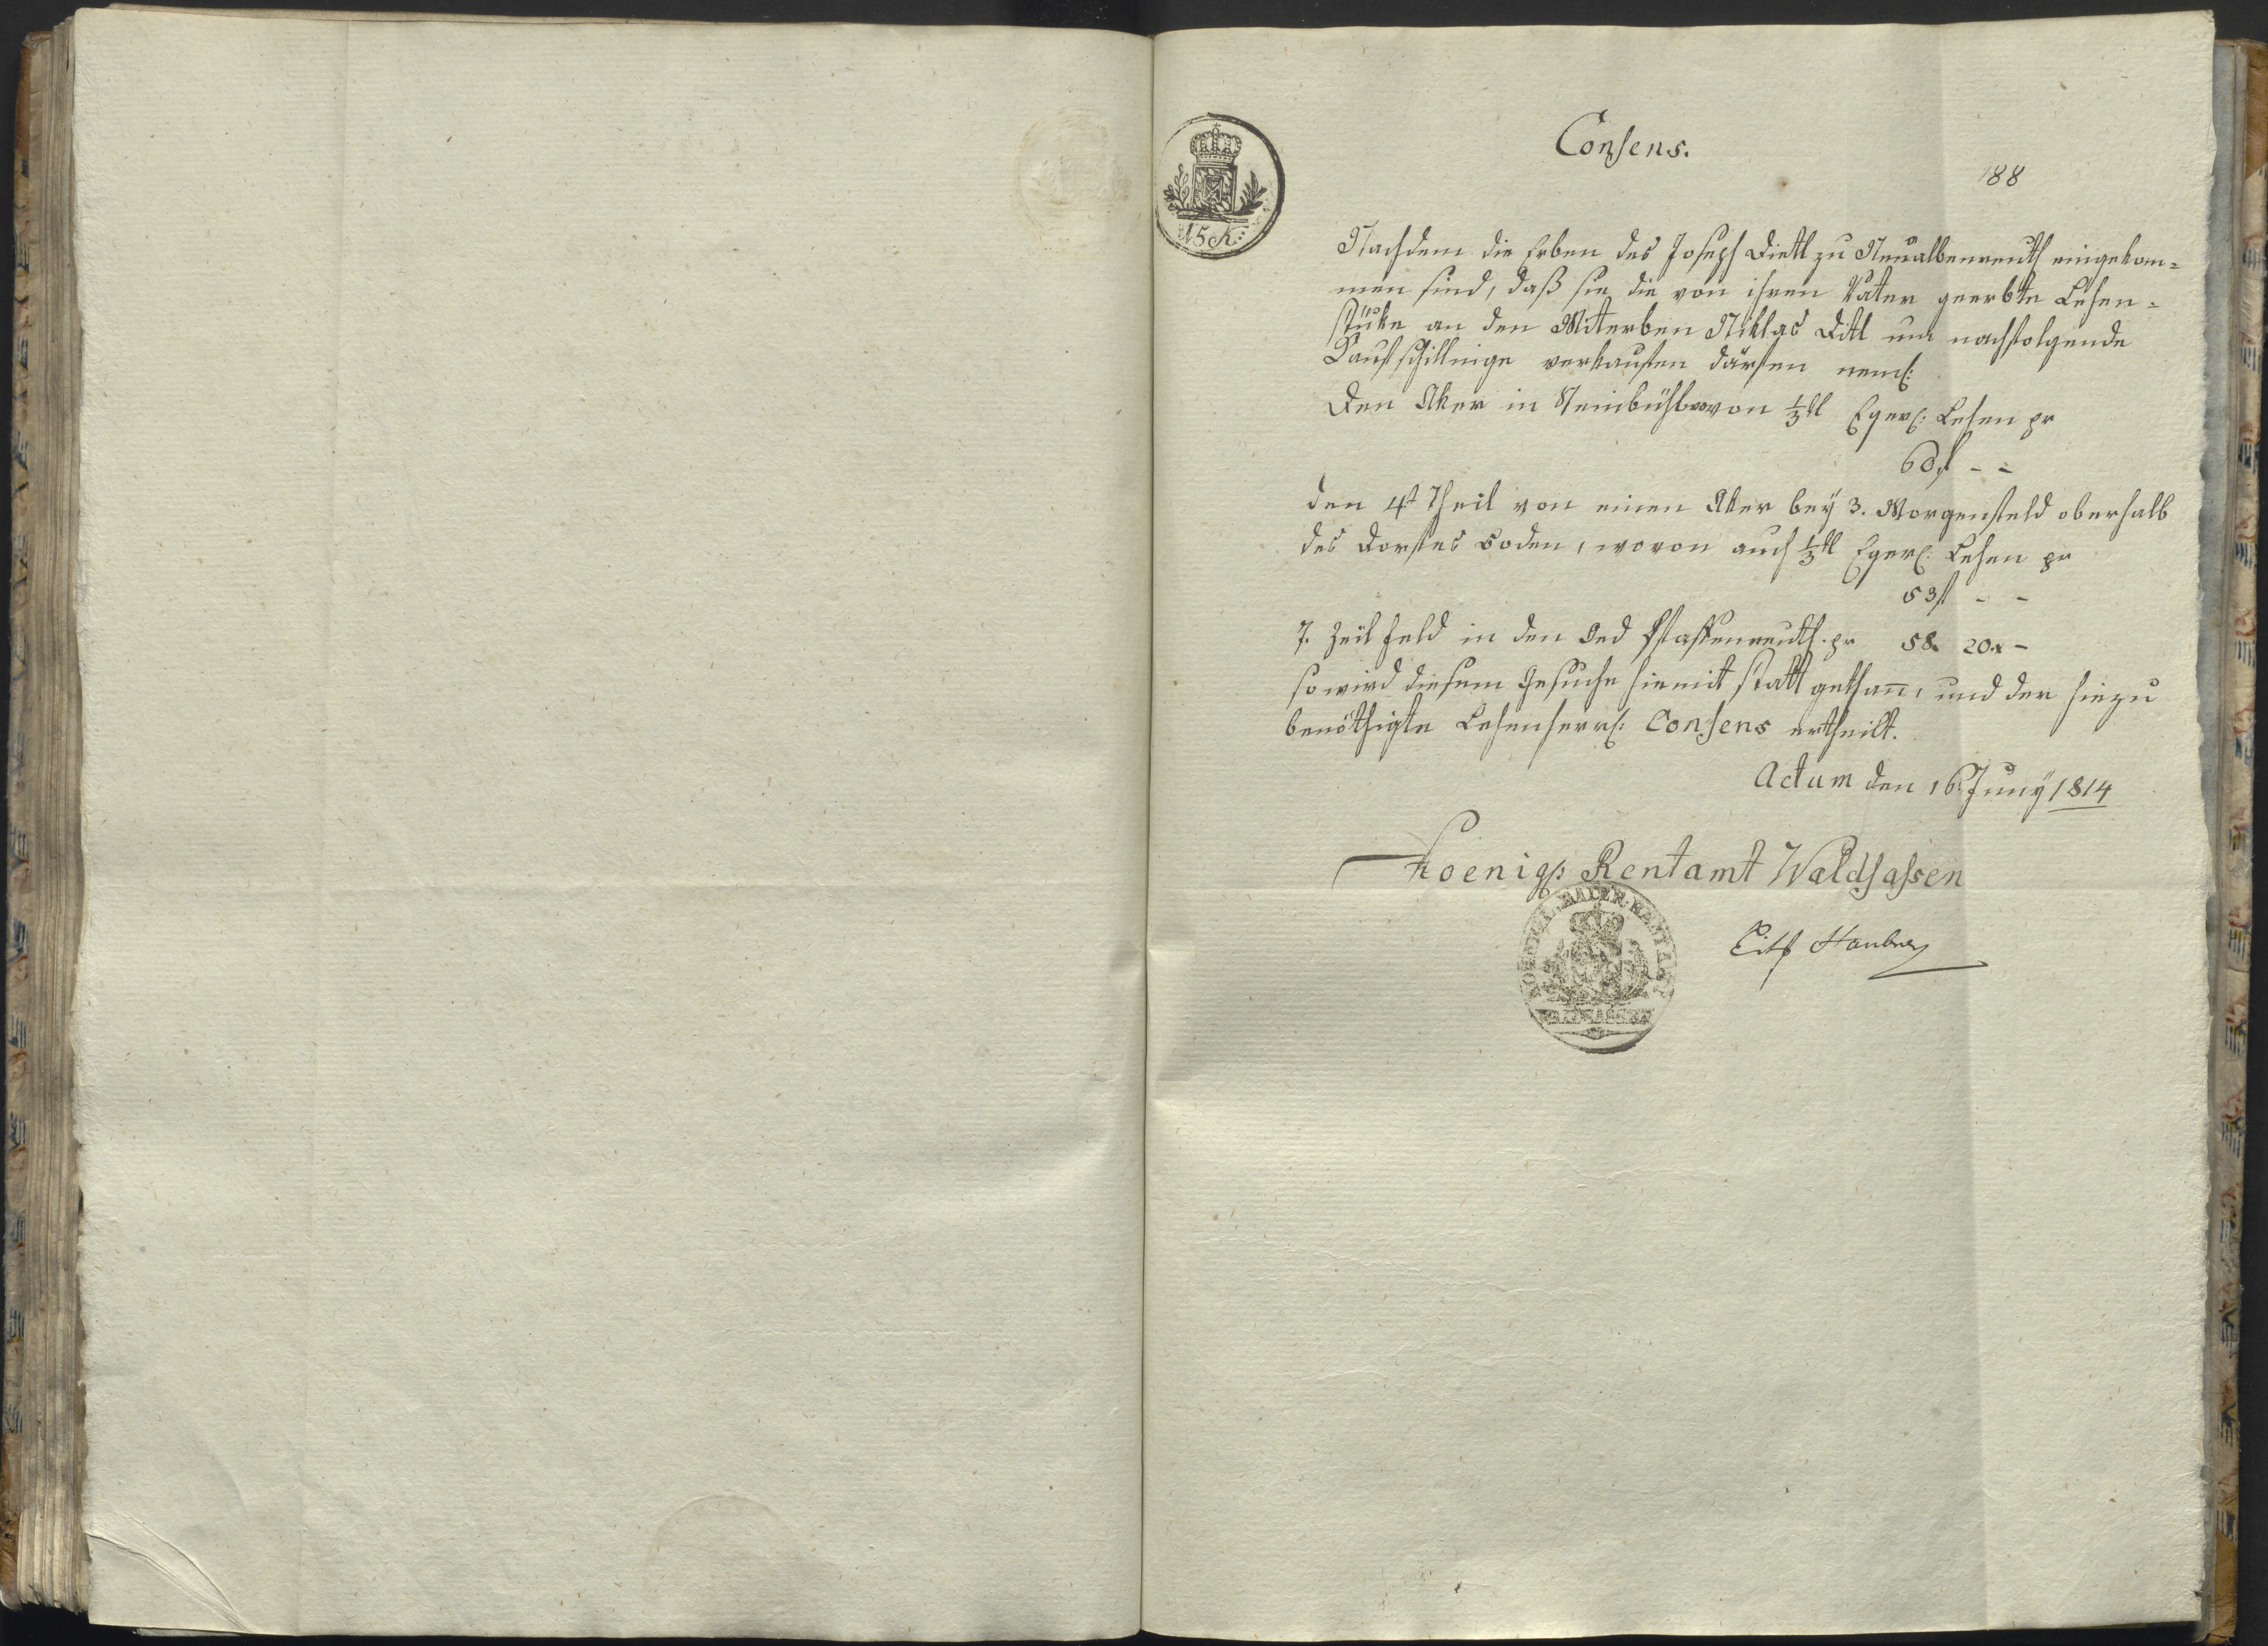 Consens.
188
15 K:
Nachdem die Erben des Joseph Dietl zu Neualbenreuth eingekom=
men sind, daß sie die von ihren Vater geerbte Lehen=
stüke an den Miterben Niklas Ditl um nachfolgende
Kaufschillinge verkaufen därfen neml:
Den Aker in Steinbühl wovon 1/3tl Egerl: Lehen pr
60 fl - -
den 4t Theil von einen Aker bey 3. Morgenfeld oberhalb
des Dorfes Boden, wovon auch 1/3tl Egerl: Lehen pr
53 fl - -
7. Zeil Feld in den Oed Pfaffenreuth. pr 58. 20x -
so wird diesem Gesuche hiemit statt gethan, und der hiezu
benöthigte Lehenherrl: Consens ertheilt.
Actum den 16 Juny 1814
Koenigl: Rentamt Waldsassen
KOENIGL. BAIER. RENTAMT
WALDSASSEN